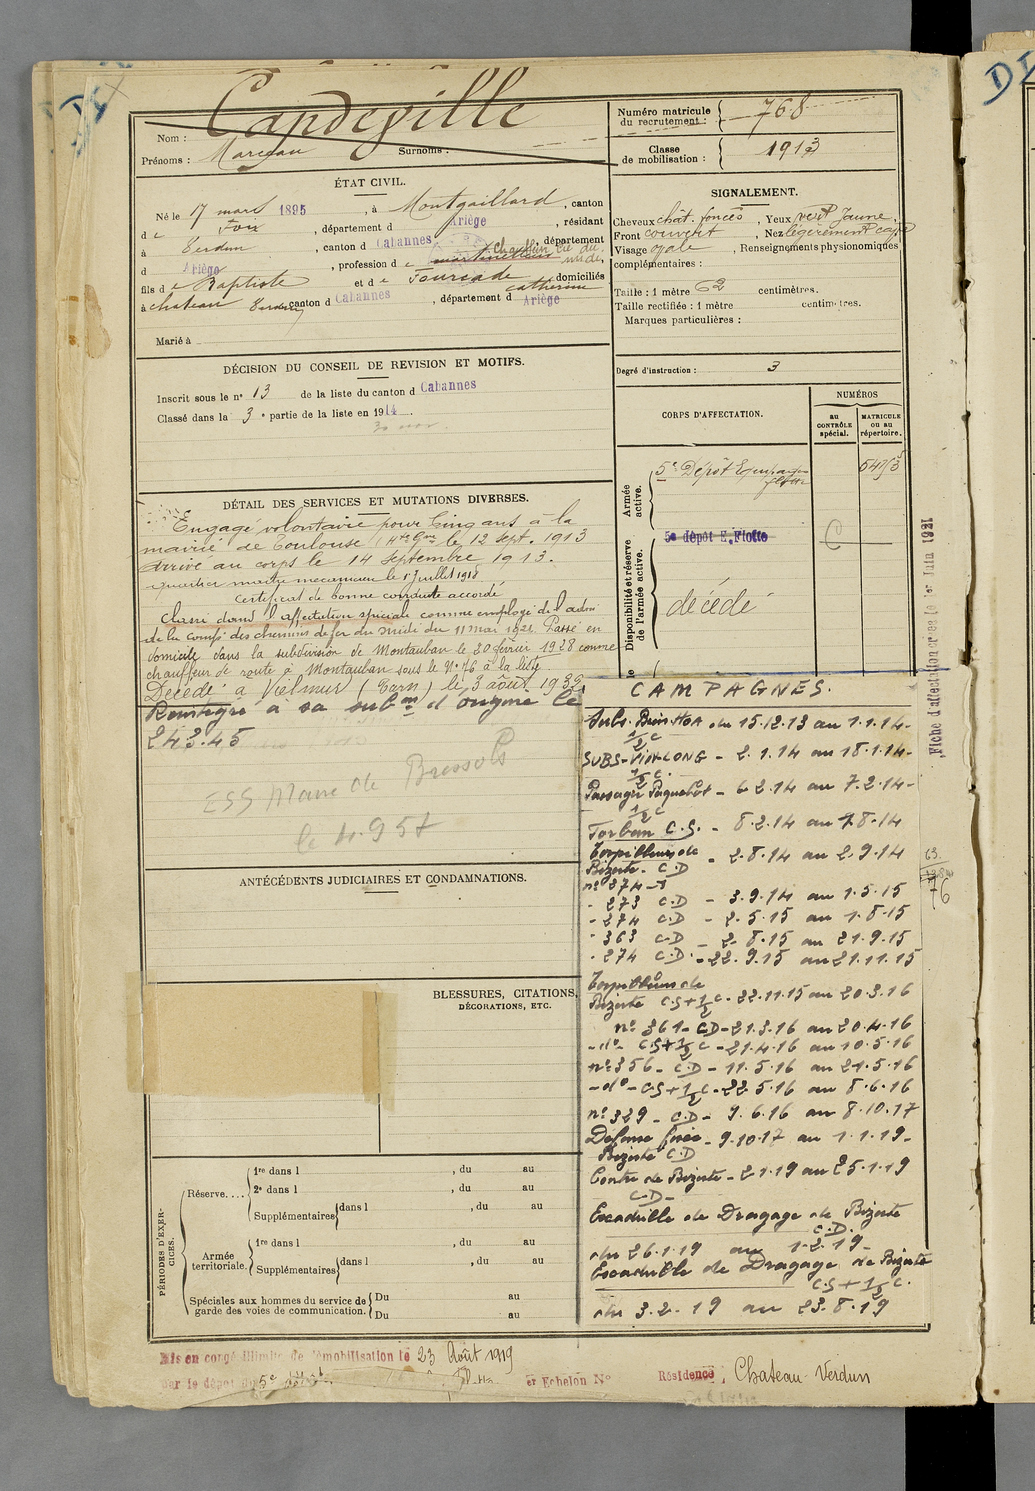 Capdeville
Nom :
Prénoms : Marceau Surnoms :
Numéro matricule du recrutement : 768
Classe de mobilisation : 1913
ÉTAT CIVIL.
Né le 17 mars 1895, à Montgaillard, canton
d e Foix, département d Ariège, résidant
à Verdun, canton d Cabannes, département
d Ariège, profession d e Chauffeur Cie du midi,
fils d e Baptiste et d e Fourcade Catherine domiciliés
à Chateau Verdun, canton d Cabannes, département d Ariège
Marié à
SIGNALEMENT.
Cheveux chât. foncés, Yeux vert Jaune,
Front couvert, Nez légèrement cave
Visage ovale, Renseignements physionomiques
complémentaires :
Taille : 1 mètre 62 centimètres.
Taille rectifiée : 1 mètre centimètres.
Marques particulières :
Degré d'instruction : 3
DÉCISION DU CONSEIL DE REVISION ET MOTIFS.
Inscrit sous le n° 13 de la liste du canton d Cabannes
Classé dans la 3e partie de la liste en 1914.
CORPS D'AFFECTATION.
NUMÉROS
au CONTRÔLE spécial.
MATRICULE ou au répertoire.
Armée active.
5e Dépôt Equipages flotte
Disponibilité et réserve de l'armée active.
5e dépôt E. Flotte
C
décédé
DÉTAIL DES SERVICES ET MUTATIONS DIVERSES.
Engagé volontaire pour Cinq ans à la
mairie de Toulouse (Hte Gne) le 12 sept. 1913
Arrivé au corps le 14 septembre 1913.
quartier maître mécanicien le 1er Juillet 1918
Certificat de bonne conduite accordé
Classé dans l'affectation spéciale comme employé de l'admon
de la Comp. des chemins de fer du midi du 11 mai 1921. Passé en
domicile dans la subdivision de Montauban le 20 février 1928 comme
chauffeur de route à Montauban sous le N° 76 à la liste
Décédé à Vielmur (Tarn) le 3 août 1939
Réintégré à sa subon d'origine le
24.3.45
ESS Maire de Bressols
le 4.9.57
CAMPAGNES.
Subs. Bien-Hoa du 15.12.13 au 1.1.14 -
1/2 C
SUBS-VINHLONG - 2.1.14 au 18.1.14 -
1/2 C.
Passager Paquebot - 6.2.14 au 7.2.14 -
1/2 C
Forban C.S. - 8.2.14 au 1.8.14
Torpilleurs de
Bizerte. C.D - 2.8.14 au 2.9.14
n° 374 -
- 273 C.D - 3.9.14 au 1.5.15
- 274 C.D - 2.5.15 au 1.8.15
- 363 C.D - 2.8.15 au 21.9.15
- 274 C.D. - 22.9.15 au 21.11.15
Torpilleurs de
Bizerte C.S+1/2 C - 22.11.15 au 20.3.16
n° 361 - C.D - 21.3.16 au 20.4.16
- d° - C.S+1/2 C - 21.4.16 au 10.5.16
n° 356 - C.D - 11.5.16 au 21.5.16
- d° - C.S+1/2 C - 22.5.16 au 8.6.16
n° 329 - C.D - 9.6.16 au 8.10.17
Défense fixe - 9.10.17 au 1.1.19 -
Bizerte C.D
Centre de Bizerte - 2.1.19 au 25.1.19
C.D -
Escadrille de Dragage de Bizerte
C.D.
du 26.1.19 au 1.2.19 -
Escadrille de Dragage de Bizerte
C.S + 1/2 C.
du 3.2.19 au 23.8.19
Fiche d'affectation créée le 1er Juin 1921
76
ANTÉCÉDENTS JUDICIAIRES ET CONDAMNATIONS.
BLESSURES, CITATIONS,
DÉCORATIONS, ETC.
PÉRIODES D'EXERCICES.
Réserve.... 1re dans l , du au
2e dans l , du au
Supplémentaires dans l , du au
Armée territoriale. 1re dans l , du au
Supplémentaires dans l , du au
Spéciales aux hommes du service de garde des voies de communication. Du au
Du au
Mis en congé illimité de démobilisation le 23 Août 1919
par le dépôt du 5e dépôt
er Echelon N°
Résidence : Chateau-Verdun